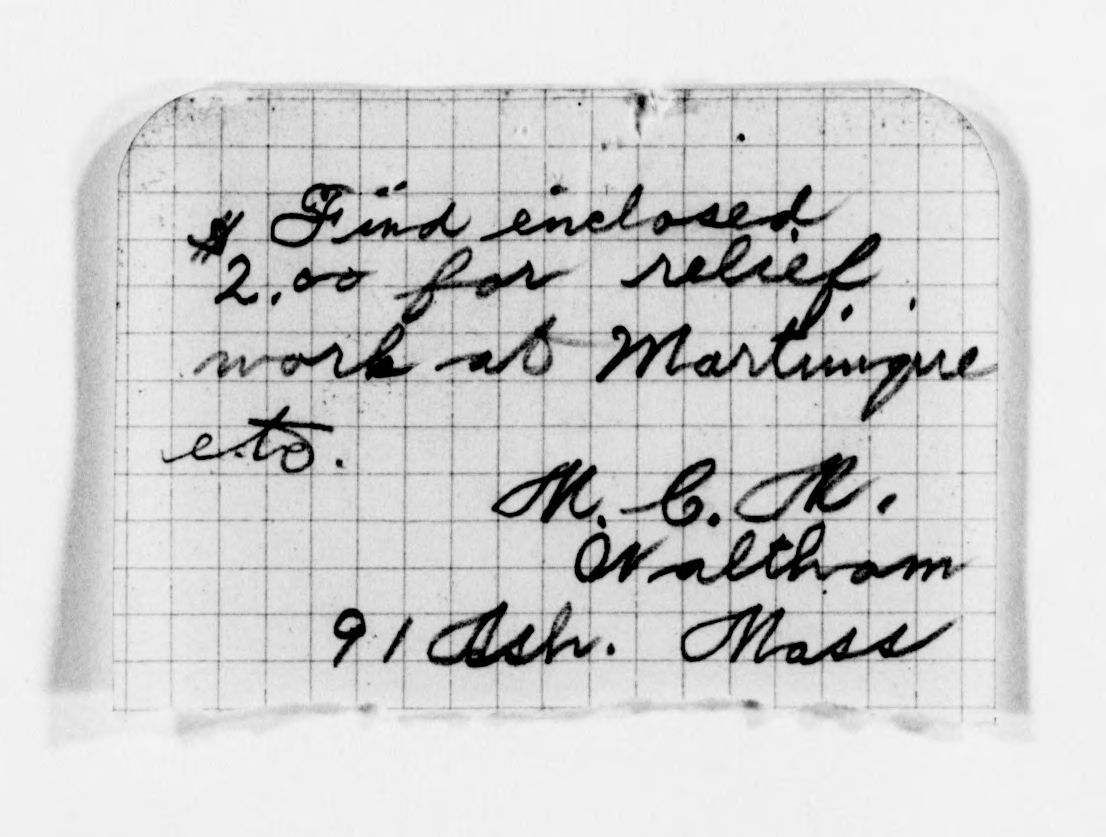 Find enclosed
$2.00 for relief
work at Martinique
etc.
M. C. M.
Waltham
91 Ash. Mass